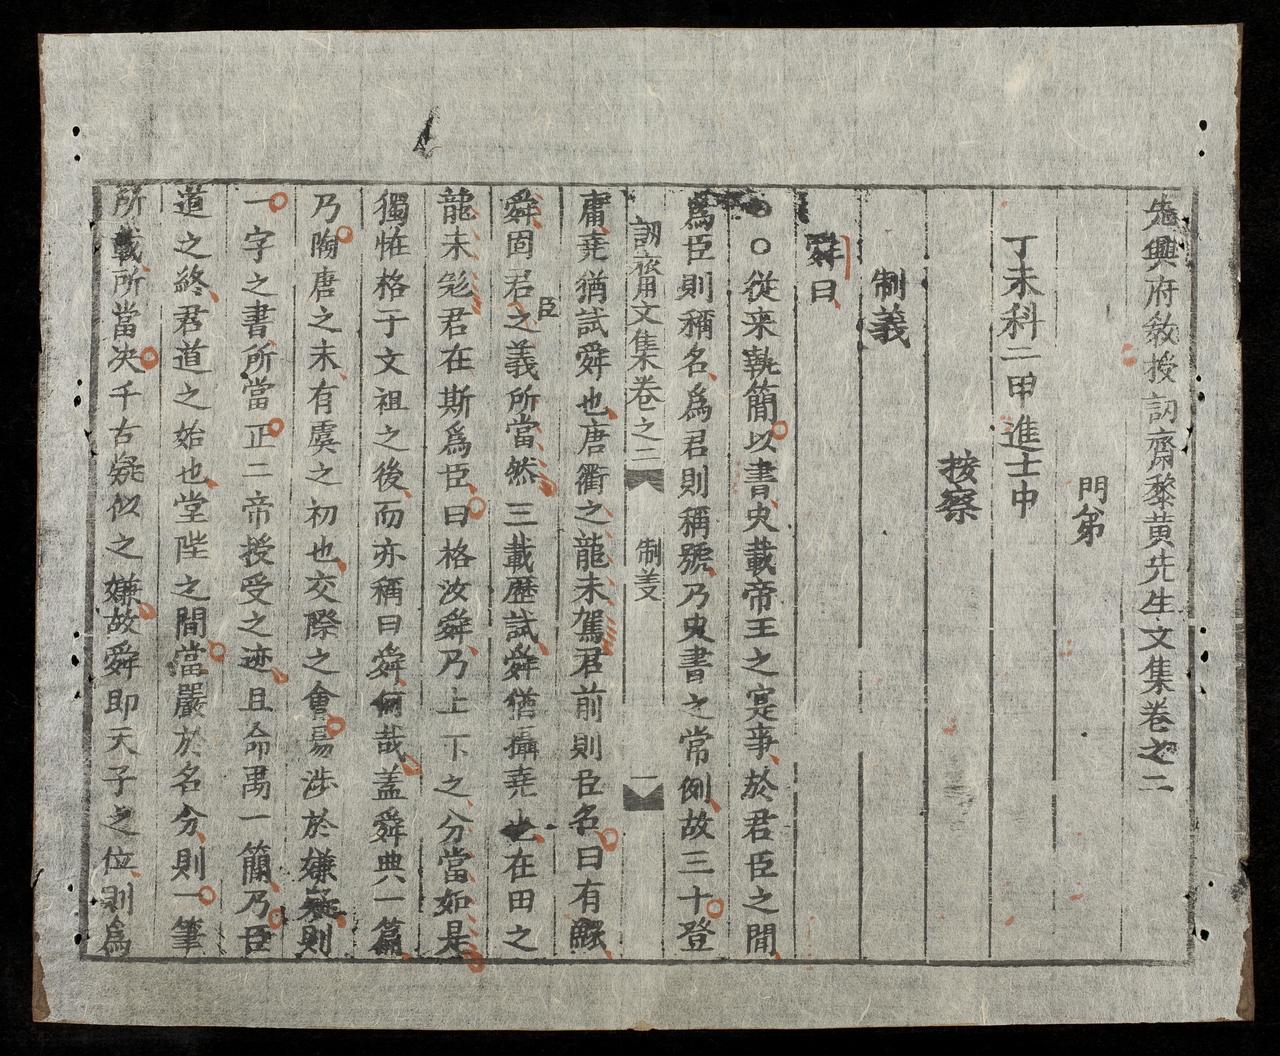 先興府教授訒齋黎黃先生文集卷之二
門弟
丁未科二甲進士中
按察
制義
舜曰
○從來執簡以書史載帝王之寔事於君臣之間
爲臣則稱名爲君則稱號乃史書之常例故三十登
訒齋用文集卷之二 制義 一
庸堯猶試舜也唐衢之龍未駕君前則臣名曰有鰥
舜固君臣之義所當然三載歷試舜猶攝堯也在田之
龍未兊君在斯爲臣曰格汝舜乃上下之分當如是
獨恠格于文祖之後而亦稱曰舜何哉盖舜典一篇
乃陶唐之末有虞之初也交際之會易涉於嫌疑則
一字之書所當正二帝授受之迹且命禹一簡乃臣
道之終君道之始也堂陛之間當嚴於名分則一筆
所載所當决千古疑似之嫌故舜即天子之位則爲